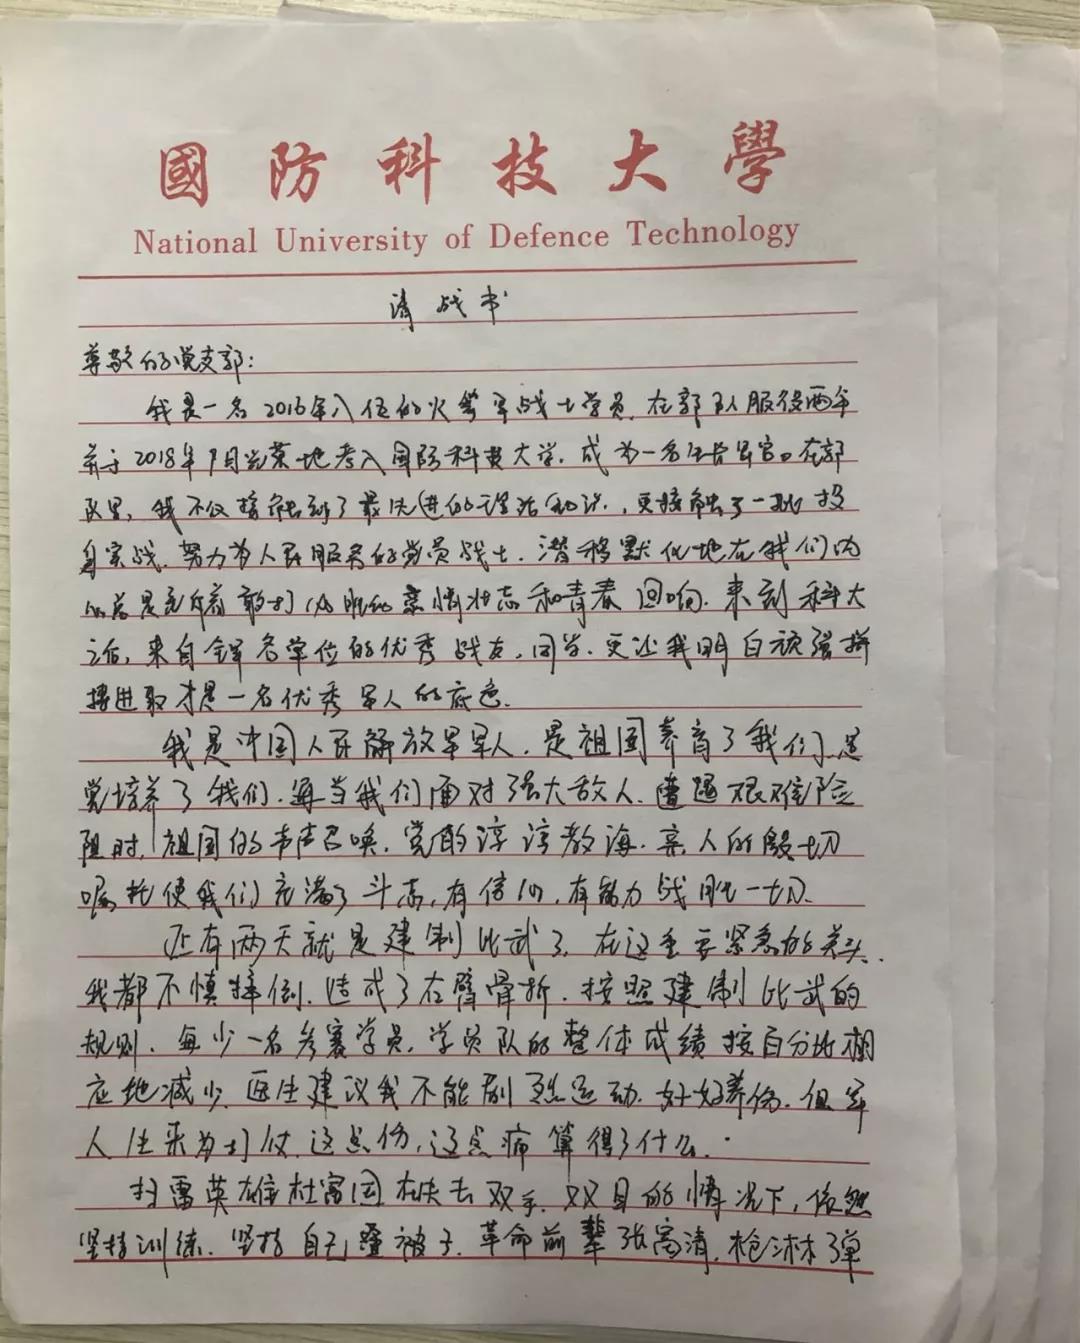 國防科技大學
National University of Defence Technology
请战书
尊敬的党支部：
我是一名2016年入伍的火箭军战士学员，在部队服役两年
并于2018年9月光荣地考入国防科技大学，成为一名生长军官。在部
队里，我不仅接触到了最先进的理论知识，更接触了一批投
身实战、努力为人民服务的党员战士，潜移默化地在我们内
心总是充斥着敢打必胜的豪情壮志和青春回响。来到科大
之后，来自全军各单位的优秀战友、同学，更让我明白顽强拼
搏进取才是一名优秀军人的底色。
我是中国人民解放军军人，是祖国养育了我们，是
党培养了我们，每当我们面对强大敌人、遭遇艰难险
阻时，祖国的声声召唤、党的谆谆教诲、亲人的殷切
嘱托使我们充满了斗志，有信心，有能力战胜一切。
还有两天就是建制比武了，在这重要紧急的关头，
我都不慎摔倒，造成了右臂骨折，按照建制比武的
规则，每少一名参赛学员，学员队的整体成绩按百分比相
应地减少，医生建议我不能剧烈运动，好好养伤，但军
人生来为打仗，这点伤，这点痛算得了什么。
扫雷英雄杜富国在失去双手、双目的情况下，依然
坚持训练，坚持自己叠被子，革命前辈张富清，枪淋弹